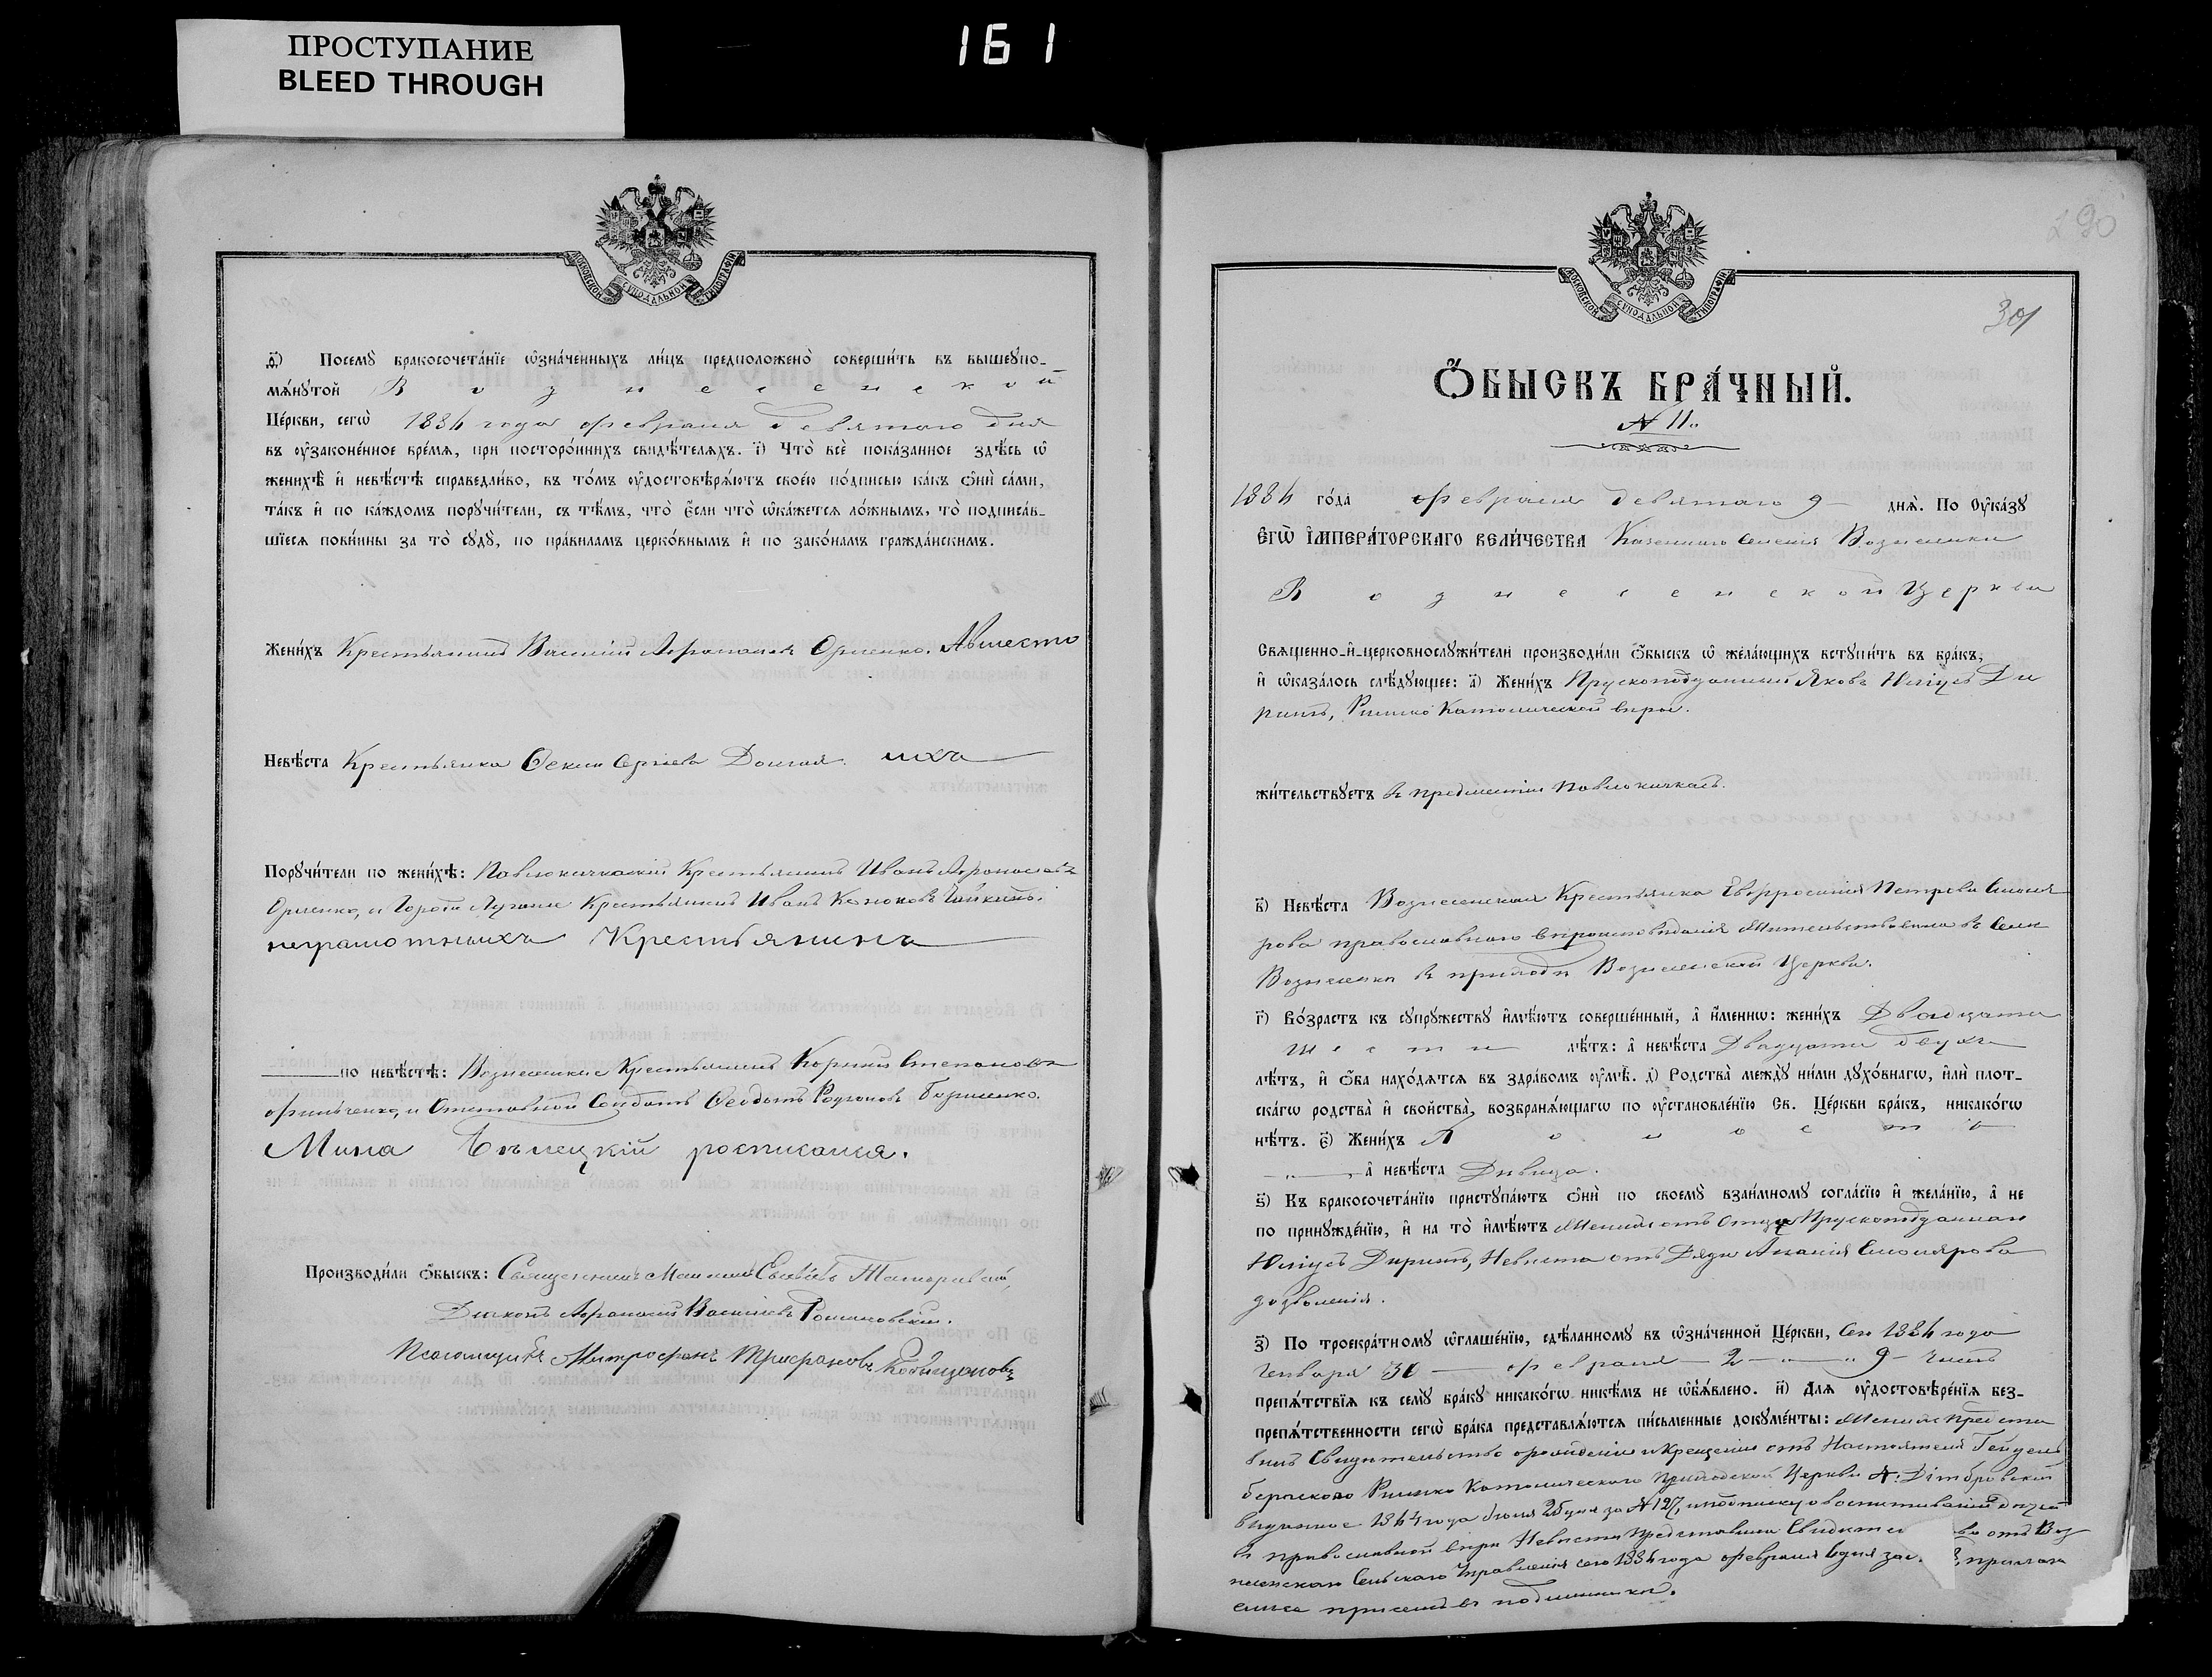 ПРОСТУПАНИЕ
BLEED THROUGH
161
МОСКОВСКОЙ СѴНОДАЛЬНОЙ ТИПОГРАФІИ
ѳ҃) Посемꙋ бракосочета́нїе ѡ҆зна́ченныхъ ли́цъ предположено̀ соверши́ть въ вышеꙋпо-
мѧ́нꙋтой Вознесенской
Це́ркви, сегѡ̀ 1884 года февраля девятаго дня
въ ᲂу҆законе́нное вре́мѧ, при посторо́ннихъ свидѣ́телѧхъ. і҃) Что̀ всѐ пока́занное здѣ́сь ѡ҆
женихѣ̀ и҆ невѣ́стѣ справедли́во, въ то́мъ ᲂу҆достовѣрѧ́ютъ свое́ю по́дписью ка́къ ѻ҆нѝ са́ми,
та́къ и҆ по ка́ждомъ порꙋчи́тели, съ тѣ́мъ, что̀ є҆́сли что̀ ѡ҆ка́жетсѧ ло́жнымъ, то̀ подписа́в-
шїесѧ пови́нны за то̀ сꙋдꙋ̀, по пра́виламъ церко́внымъ и҆ по зако́намъ гражда́нскимъ.
Жени́хъ Крестьянинъ Василій Афанасіевъ Орленко. А вместо
Невѣ́ста Крестьянка Долгая. ихъ
Порꙋчи́тели по женихѣ̀: Павлокичкаскій Крестьянинъ Иванъ Афанасіевъ
Орленко, и Крестьянинъ Иванъ
неграмотныхъ Крестьянинъ
по невѣ́стѣ: Крестьянинъ Степановъ
и Отставной Солдатъ Ѳеодотъ
Мина Белецкій росписался.
Производи́ли ѻ҆́быскъ: Священникъ
Діаконъ Афанасій Василіевъ Романовскій.
Псаломщикъ Митрофанъ Трифановъ
290
МОСКОВСКОЙ СѴНОДАЛЬНОЙ ТИПОГРАФІИ
301
Ѻ҆́БЫСКЪ БРА́ЧНЫЙ.
N 11.
1884 го́да февраля девятаго 9 днѧ̀. По Оу҆ка́зꙋ
Є҆гѡ̀ І҆мпера́торскаго Вели́чества Казеннаго Селенія Вознесенки
Вознесенской Церкви
Свѧще́нно-и҆-церковнослꙋжи́тели производи́ли ѻ҆́быскъ ѡ҆ жела́ющихъ встꙋпи́ть въ бра́къ,
и҆ ѡ҆каза́лось слѣ́дꙋющее: а҃) Жени́хъ Прускоподданный Яковъ Юліусъ Ди
ритъ, Римско Католической веры.
жи́тельствꙋетъ въ предместіи Павлокичкасъ.
в҃) Невѣ́ста Вознесенская Крестьянка Евфросинія Петрова Смоля
рова православнаго вероисповеданія Жительствовала въ Селе
Вознесенке въ приходе Вознесенской Церкви.
г҃) Во́зрастъ къ сꙋпрꙋ́жествꙋ и҆мѣ́ютъ соверше́нный, а҆ и҆́меннѡ: жени́хъ Двадцати
шести лѣ́тъ: а҆ невѣ́ста Двадцати двухъ
лѣ́тъ, и҆ ѻ҆́ба нахо́дѧтсѧ въ здра́вомъ ᲂу҆мѣ̀. д҃) Родства̀ междꙋ ни́ми дꙋхо́внагѡ, и҆лѝ плот-
ска́гѡ родства̀ и҆ свойства̀, возбранѧ́ющагѡ по ᲂу҆становле́нїю Св. Це́ркви бра́къ, никако́гѡ
нѣ́тъ. є҃) Жени́хъ Холостъ
а҆ невѣ́ста Девица.
ѕ҃) Къ бракосочета́нїю пристꙋпа́ютъ ѻ҆нѝ по своемꙋ̀ взаи́мномꙋ согла́сїю и҆ жела́нїю, а҆ не
по принꙋжде́нїю, и҆ на то̀ и҆мѣ́ютъ Женихъ отъ отца Прускоподданнаго
Юліусъ Диритъ, Невеста отъ Дяди Ананія Смолярова
дозволенія.
з҃) По троекра́тномꙋ ѡ҆глаше́нїю, сдѣ́ланномꙋ въ ѡ҆зна́ченной Це́ркви, Сего 1884 года
Генваря 30 февраля 2 9 числъ
препѧ́тствїѧ къ семꙋ̀ бра́кꙋ никако́гѡ никѣ́мъ не ѡ҆б̾ѧ́влено. и҃) Длѧ ᲂу҆достовѣре́нїѧ без-
препѧ́тственности сегѡ̀ бра́ка представлѧ́ютсѧ пи́сьменные докꙋме́нты: Женихъ предста
вилъ Свидетельство о рожденіи и крещеніи отъ Настоятеля Гейдель
бергскаго Римско Католическаго Приходской Церкви
выданное года 25 дня за N 127, и подписку о воспитываніи детей
въ православной вере Невеста представила Свидетел во отъ Воз
несенскаго Сельскаго Управленія сего 1884 года февраля 6 дня за прилага
емые присемъ въ подлинникахъ.